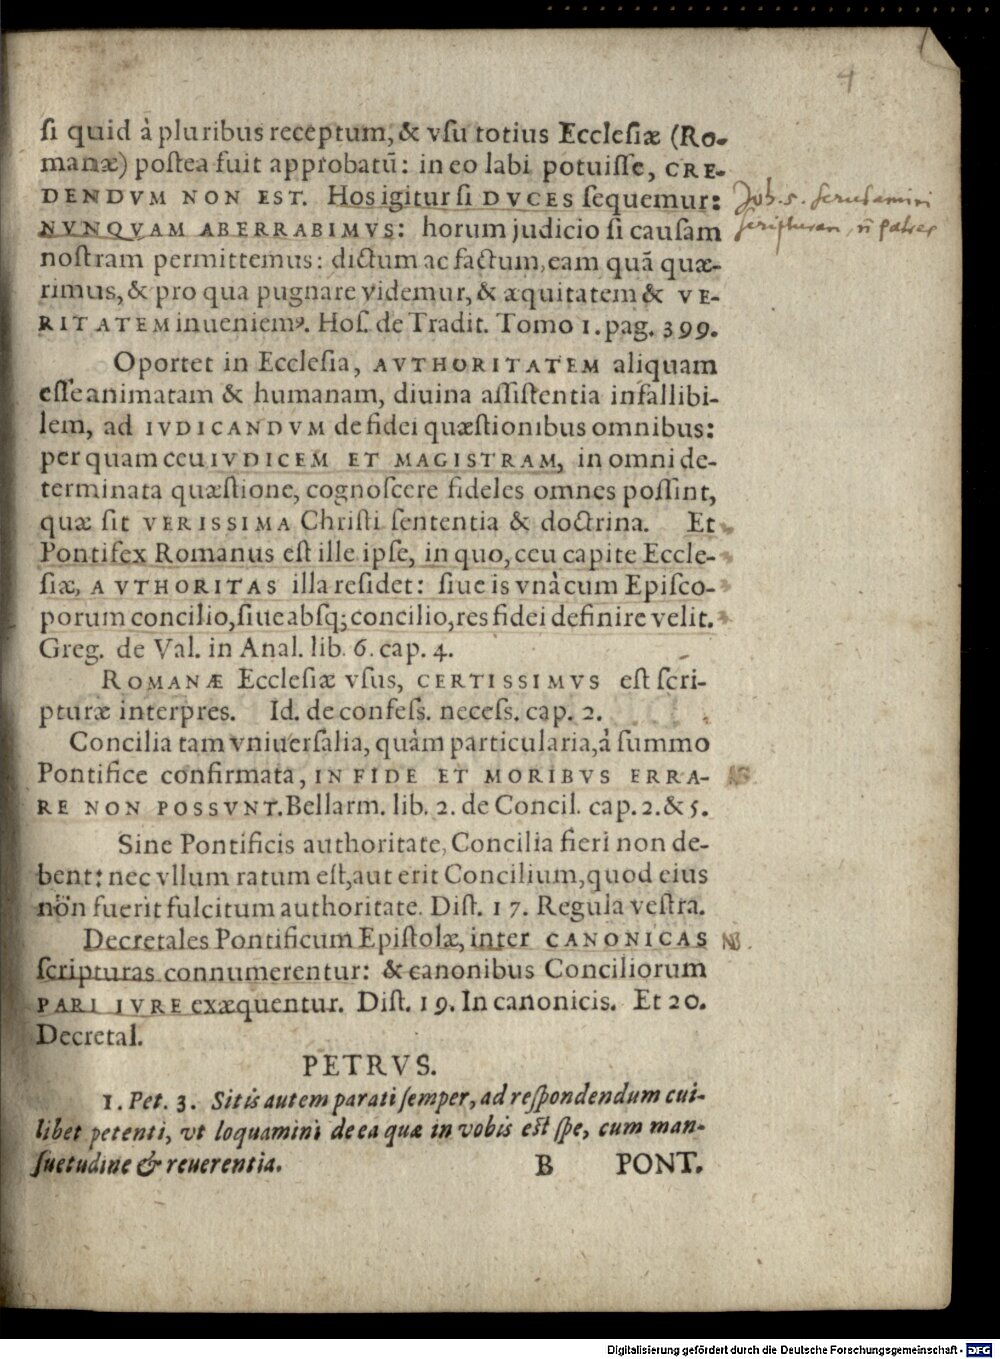 4
si quid à pluribus receptum, & vsu totius Ecclesiæ (Ro-
manæ) postea fuit approbatū: in eo labi potuisse, CRE-
DENDVM NON EST. Hos igitur si DVCES sequemur:
NVNQVAM ABERRABIMVS: horum judicio si causam
nostram permittemus: dictum ac factum, eam quā quæ-
rimus, & pro qua pugnare videmur, & æquitatem & VE-
RITATEM inueniemꝰ. Hos. de Tradit. Tomo 1. pag. 399.
Joh. 5. scrutamini
scripturam, n̄ patres
Oportet in Ecclesia, AVTHORITATEM aliquam
esse animatam & humanam, diuina assistentia infallibi-
lem, ad IVDICANDVM de fidei quæstionibus omnibus:
per quam ceu IVDICEM ET MAGISTRAM, in omni de-
terminata quæstione, cognoscere fideles omnes possint,
quæ sit VERISSIMA Christi sententia & doctrina. Et
Pontifex Romanus est ille ipse, in quo, ceu capite Eccle-
siæ, AVTHORITAS illa residet: siue is vnà cum Episco-
porum concilio, siue absq; concilio, res fidei definire velit.
Greg. de Val. in Anal. lib. 6. cap. 4.
ROMANÆ Ecclesiæ vsus, CERTISSIMVS est scri-
pturæ interpres. Id. de confess. necess. cap. 2.
Concilia tam vniuersalia, quàm particularia, à summo
Pontifice confirmata, IN FIDE ET MORIBVS ERRA-
RE NON POSSVNT. Bellarm. lib. 2. de Concil. cap. 2. & 5.
Sine Pontificis authoritate, Concilia fieri non de-
bent: nec vllum ratum est, aut erit Concilium, quod eius
non fuerit fulcitum authoritate. Dist. 17. Regula vestra.
Decretales Pontificum Epistolæ, inter CANONICAS NB.
scripturas connumerentur: & canonibus Conciliorum
PARI IVRE exæquentur. Dist. 19. In canonicis. Et 20.
Decretal.
PETRVS.
1. Pet. 3. Sitis autem parati semper, ad respondendum cui-
libet petenti, vt loquamini de ea quæ in vobis est spe, cum man-
suetudine & reuerentia.
B PONT.
Digitalisierung gefördert durch die Deutsche Forschungsgemeinschaft - DFG